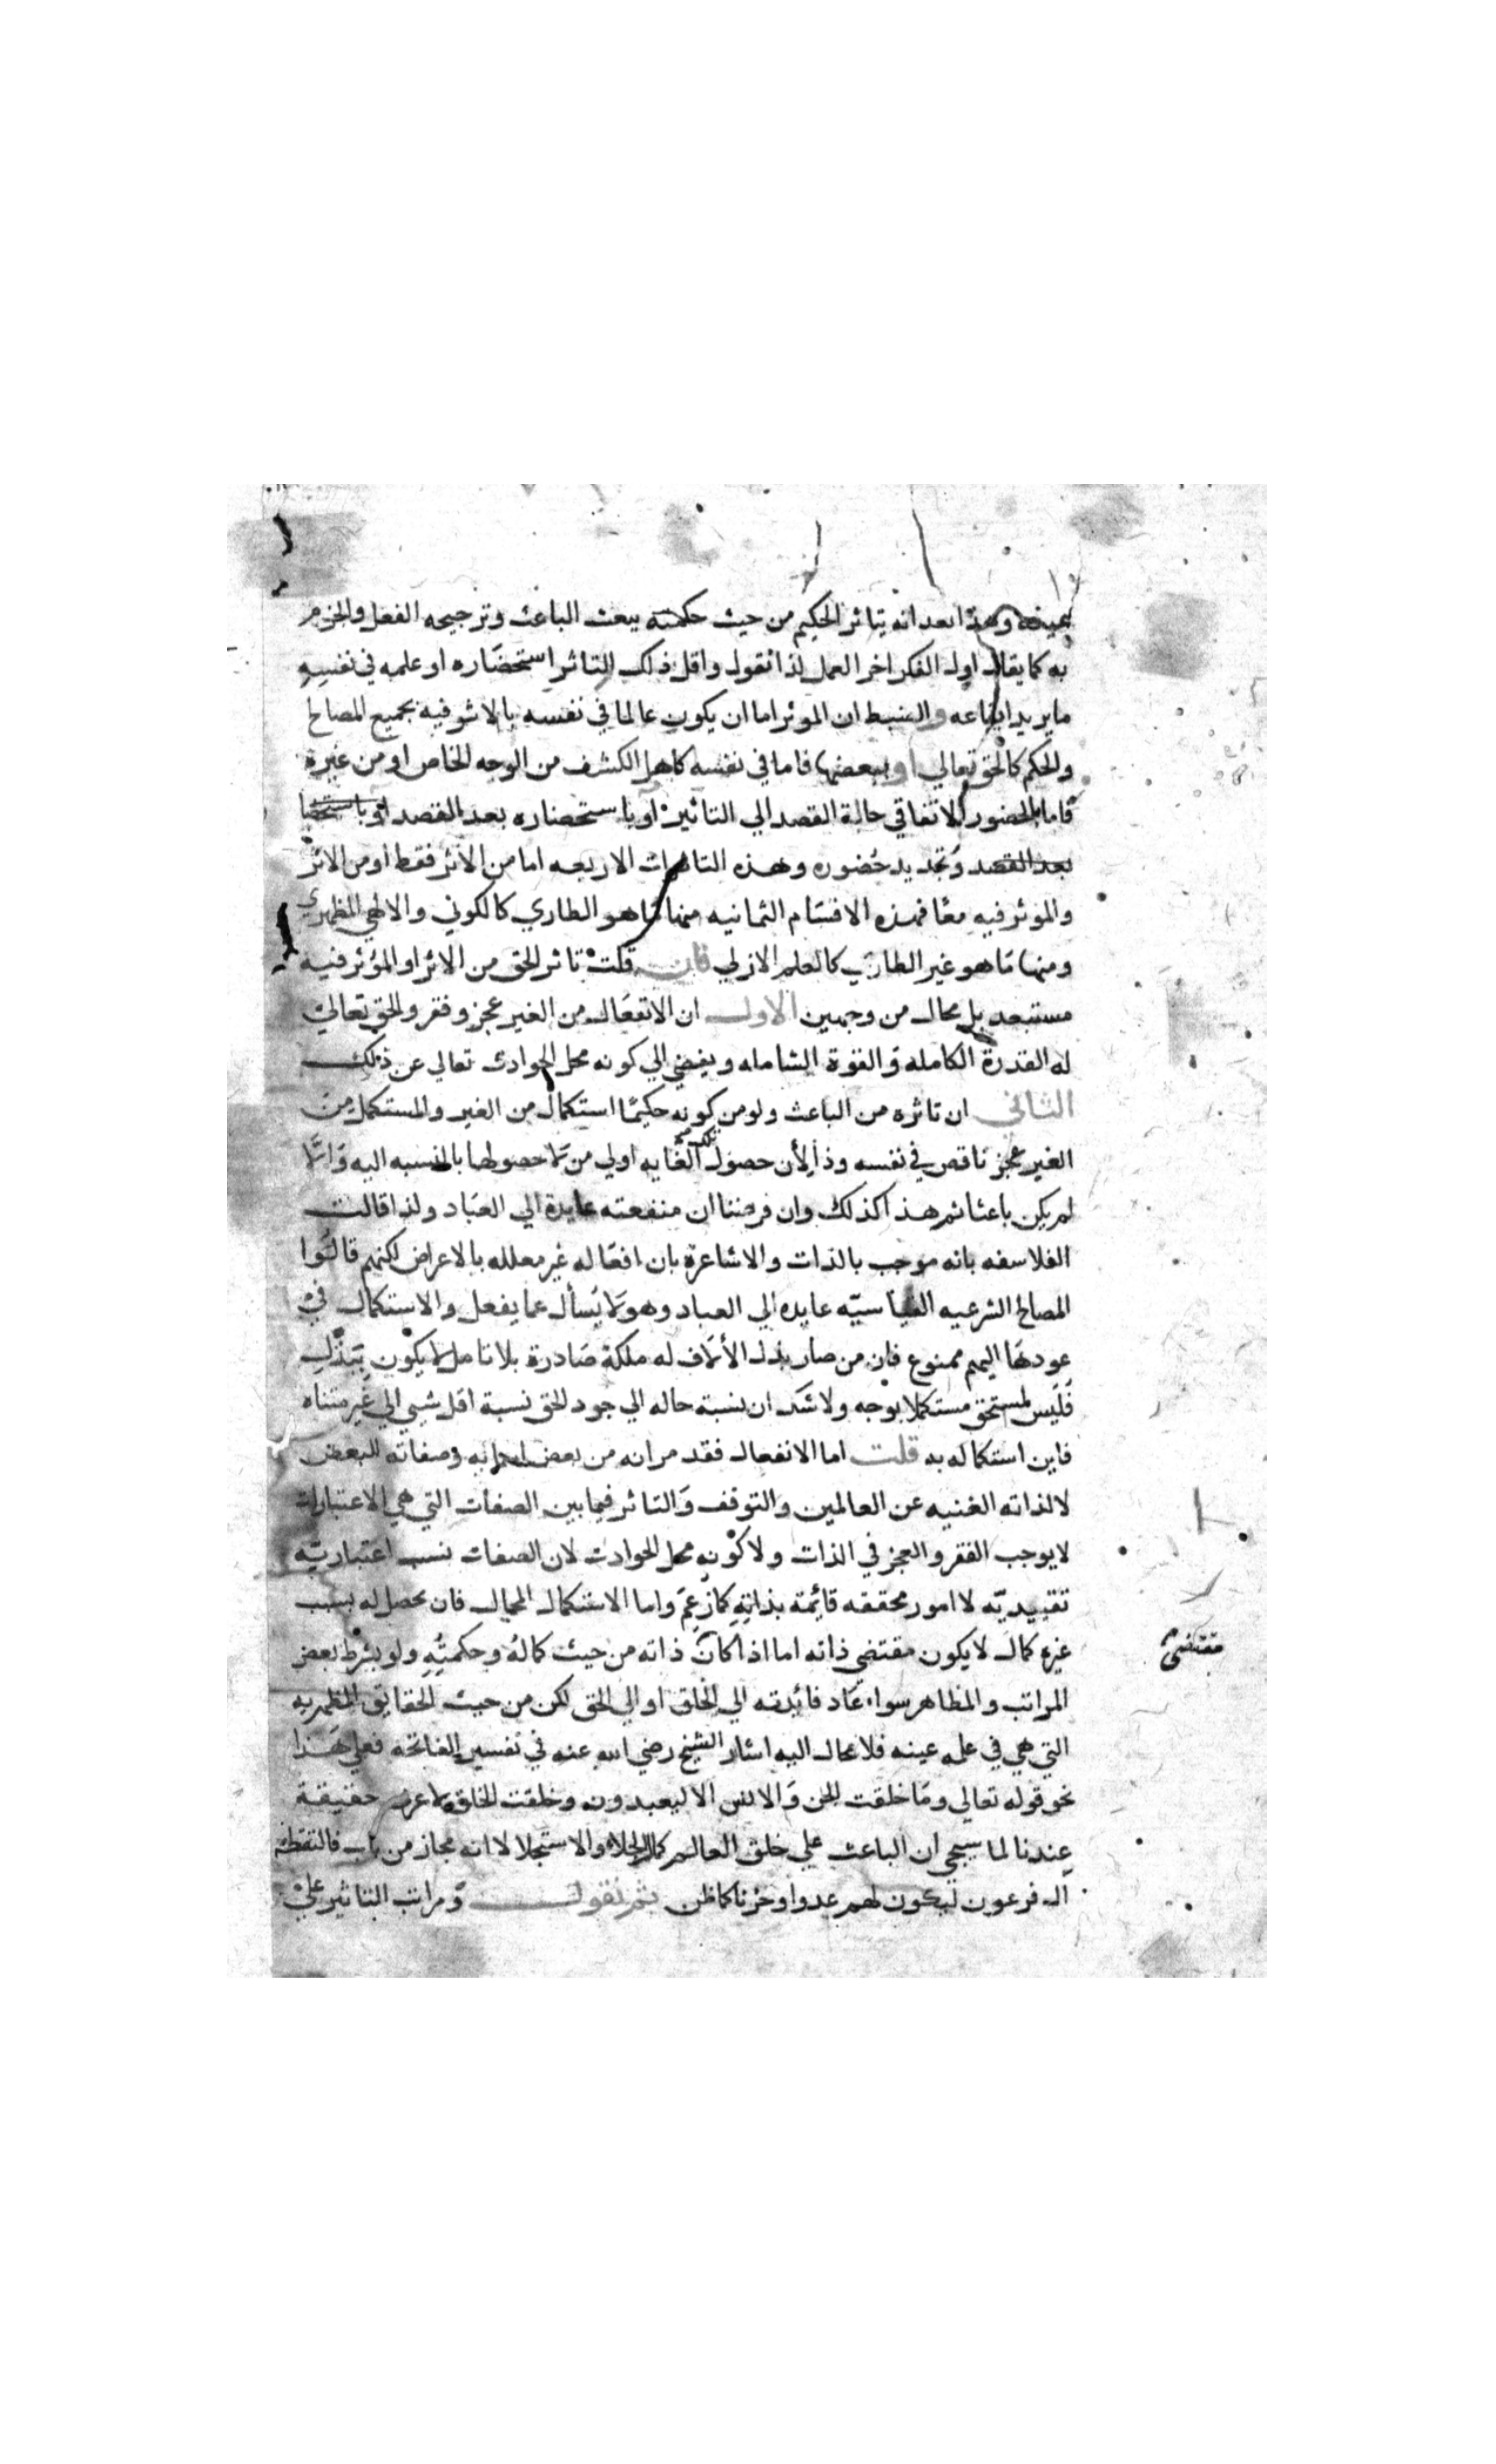 عينه وهذا بعد انه يتاثر الحكيم من حيث حكمته يبعث الباعث وترجيحه الفعل والجزم
به كما يقال اول الفكر اخر العمل لذا نقول واقل ذلك التاثر استحضاره او علمه في نفسه
ما يريد ايقاعه والضبط ان الموثر اما ان يكون عالما في نفسه بالاثر فيه بجميع المصالح
والحكم كالحق تعالي او ببعضها فاما في نفسه كاهل الكشف من الوجه الخاص او من غيره
فاما بالحضور الاتفاقي حالة القصد الي التاثير او باستحضاره بعد القصد او باستحضا
بعد القصد وتجديد حضوره وهذه التاثيرات الاربعه اما من الاثر فقط او من الاثر
والموثر فيه معا فهذه الاقسام الثمانيه منها ما هو الطاري كالكوني والالهي المظهري
ومنها ما هو غير الطاري كالعلم الازلي فان قلت تاثر الحق من الاثر او المؤثر فيه
مستبعد بل محال من وجهين الاول ان الانفعال من الغير عجز وفقر والحق تعالي
له القدرة الكامله والقوة الشامله ويفضي الي كونه محل الحوادث تعالي عن ذلك
الثاني ان تاثره من الباعث ولو من كونه حكيما استكمال من الغير والمستكمل من
الغير عجز ناقص في نفسه وذا لأن حصول تلك الغايه اولي من لا حصولها بالنسبه اليه والا
لم يكن باعثا ثم هذا كذلك وان فرضنا ان منفعته عايدة الي العباد ولذا قالت
الفلاسفه بانه موجب بالذات والاشاعرة بان افعاله غير معلله بالاعراض لكنهم قالوا
المصالح الشرعيه القياسيه عايده الي العباد وهو لا يسأل عما يفعل والاستكمال في
عودها اليهم ممنوع فان من صار بذل الألاف له ملكة صادرة بلا تامل لا يكون ببذل
فليس لمستحق مستكملا بوجه ولا شك ان نسبة حاله الي جود الحق نسبة اقل شيي الي غير متناه
فاين استكماله به قلت اما الانفعال فقد مر انه من بعض اسمائه وصفاته للبعض
لا لذاته الغنيه عن العالمين والتوقف والتاثر فيما بين الصفات التي هي الاعتبارات
لا يوجب الفقر والعجز في الذات ولا كونه محل الحوادث لان الصفات نسب اعتباريه
تقييديه لا امور محققه قائمة بذاته كما زعم واما الاستكمال المحال فان يحصل له بسبب
غيره كمال لا يكون مقتضي ذاته اما اذا كان ذاته من حيث كماله وحكمته ولو بشرط بعض
مقتضي
المراتب والمظاهر سواء عاد فائدته الي الخلق او الي الحق لكن من حيث الحقايق المظهريه
التي هي في علمه عينه فلا محال اليه اشار الشيخ رضي الله عنه في تفسير الفاتحه فعلي هذا
نحو قوله تعالي وما خلقت الجن والانس الا ليعبدون وخلقت الخلق لاعرف حقيقة
عندنا لما سيجي ان الباعث علي خلق العالم كمال الجلاء والاستجلا لا انه مجاز من باب فالتقطه
ال فرعون ليكون لهم عدوا وحزنا كما ظن ثم نقول ومراتب التاثير علي